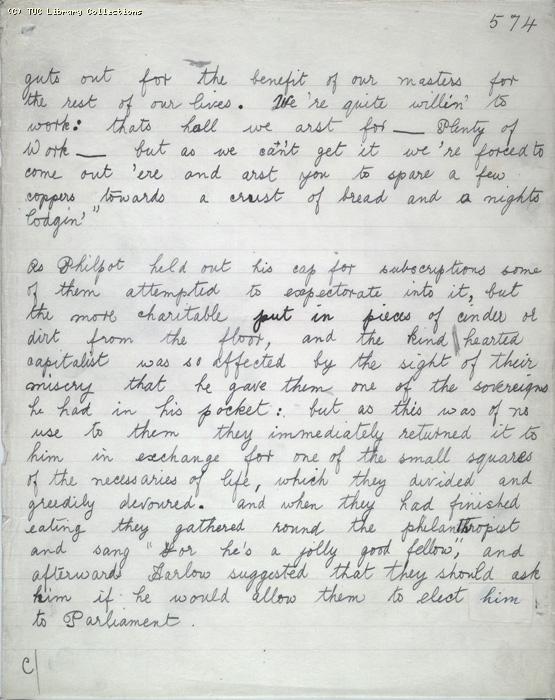 (C) TUC Library Collections
574
guts out for the benefit of our masters for
the rest of our lives. We're quite willin' to
work: thats hall we arst for — Plenty of
Work — but as we can't get it we're forced to
come out 'ere and arst you to spare a few
coppers towards a crust of bread and a nights
lodgin'"
As Philpot held out his cap for subscriptions some
of them attempted to expectorate into it, but
the more charitable put in pieces of cinder or
dirt from the floor, and the kind hearted
capitalist was so affected by the sight of their
misery that he gave them one of the sovereigns
he had in his pocket: but as this was of no
use to them they immediately returned it to
him in exchange for one of the small squares
of the necessaries of life, which they divided and
greedily devoured. and when they had finished
eating they gathered round the philanthropist
and sang "For he's a jolly good fellow," and
afterwards Harlow suggested that they should ask
him if he would allow them to elect him
to Parliament.
C